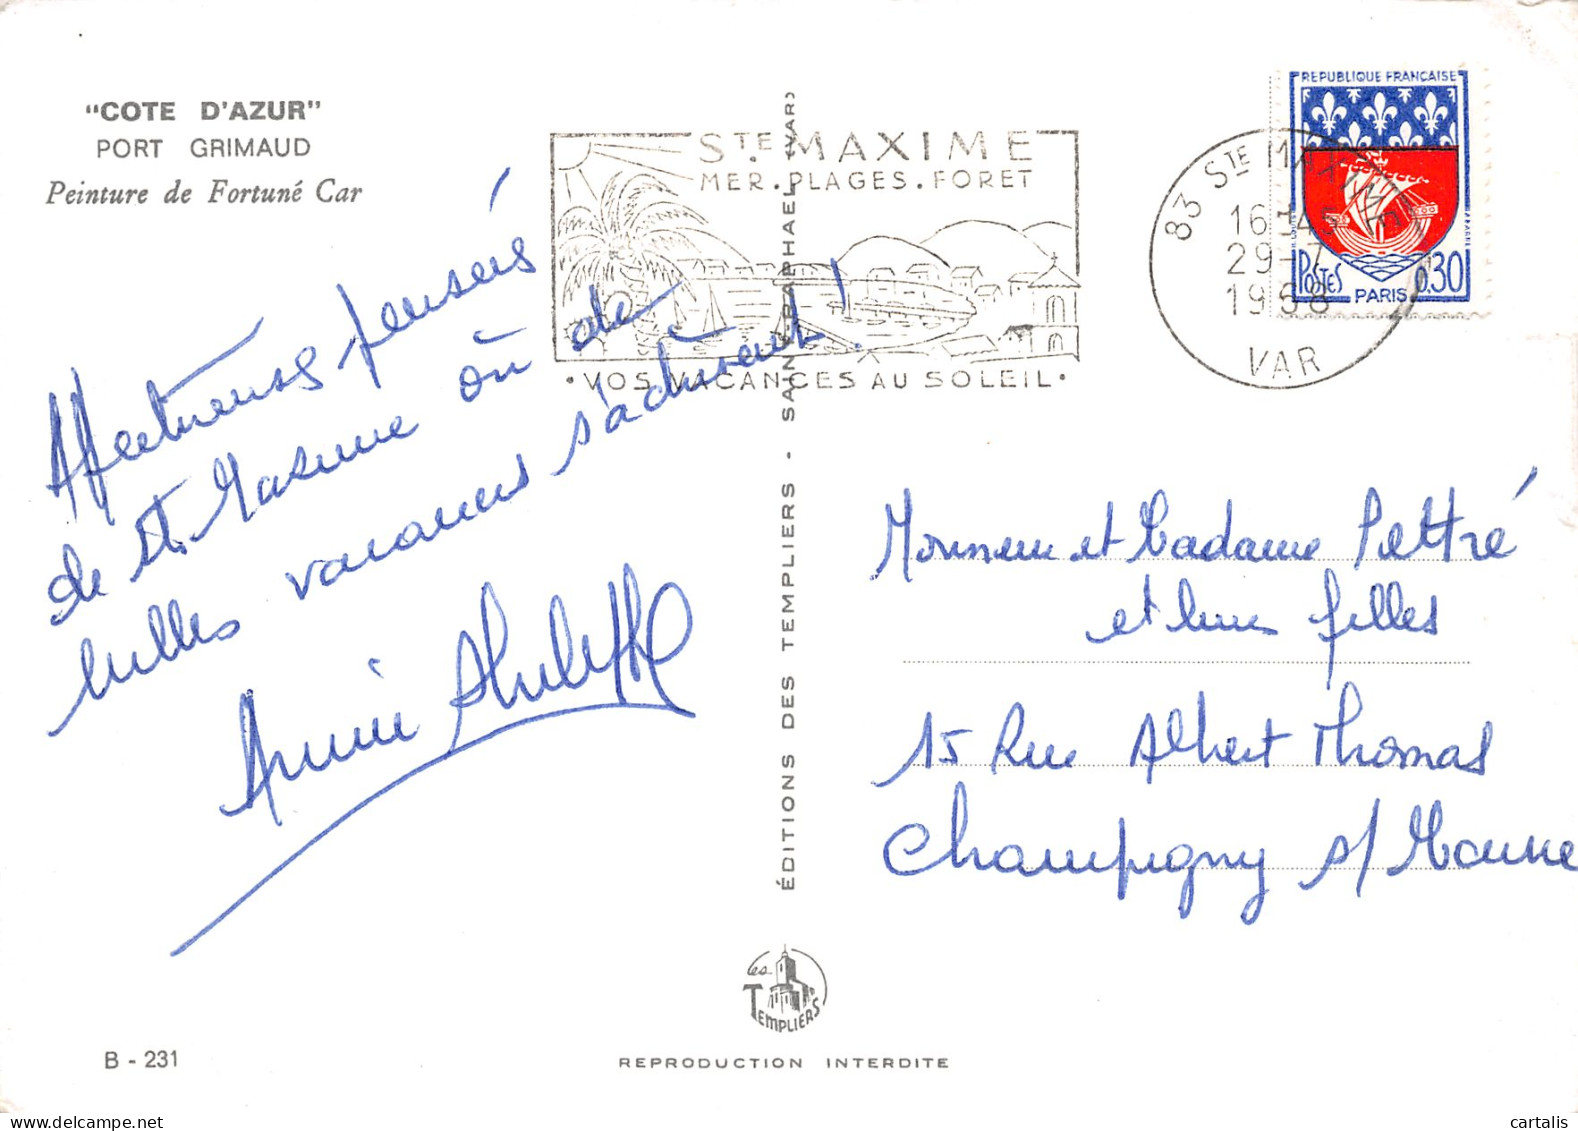 "COTE D'AZUR"
PORT GRIMAUD
Peinture de Fortuné Car
STE. MAXIME
MER. PLAGES. FORET
• VOS VACANCES AU SOLEIL •
83 STE MAXIME
16-45
29-7
1968
VAR
REPUBLIQUE FRANÇAISE
POSTES
PARIS
0,30
Affectueuses pensées
de St. Maxime où de
belles vacances s'achèvent !
Annie
ÉDITIONS DES TEMPLIERS - SAINT-RAPHAEL (VAR)
Monsieur et Madame Pettré
et leurs filles
15 Rue Albert Thomas
Champigny s/ Marne
Les
TEMPLIERS
B - 231
REPRODUCTION INTERDITE
cartalis